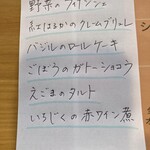 野菜の
紅はるかのクレームブリュレ
バジルのロールケーキ
ごぼうのガトーショコラ
えごまのタルト
いちじくの赤ワイン煮